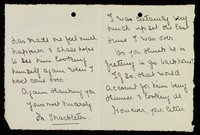 has made me feel much
happier & I shall hope
to see him looking
himself again when I
next come over.
Again thanking you
Yours most sincerely
E. Shackleton.
I was certainly very
much upset the last
time I was over.
Do you think he is
getting to go backward?
If so, that would
account for him being
thinner & looking ill
However, your letter